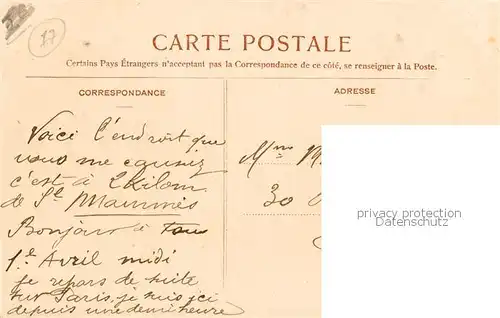 17
CARTE POSTALE
Certains Pays Étrangers n'acceptant pas la Correspondance de ce côté, se renseigner à la Poste.
CORRESPONDANCE
Voici l'endroit que
vous me
c'est à 2 kilom
de St Mammès
Bonjour à tous
1er Avril midi
je repars de suite
sur Paris, je suis ici
depuis une demi heure
ADRESSE
Mme
30
privacy protection
www.oldthing.de